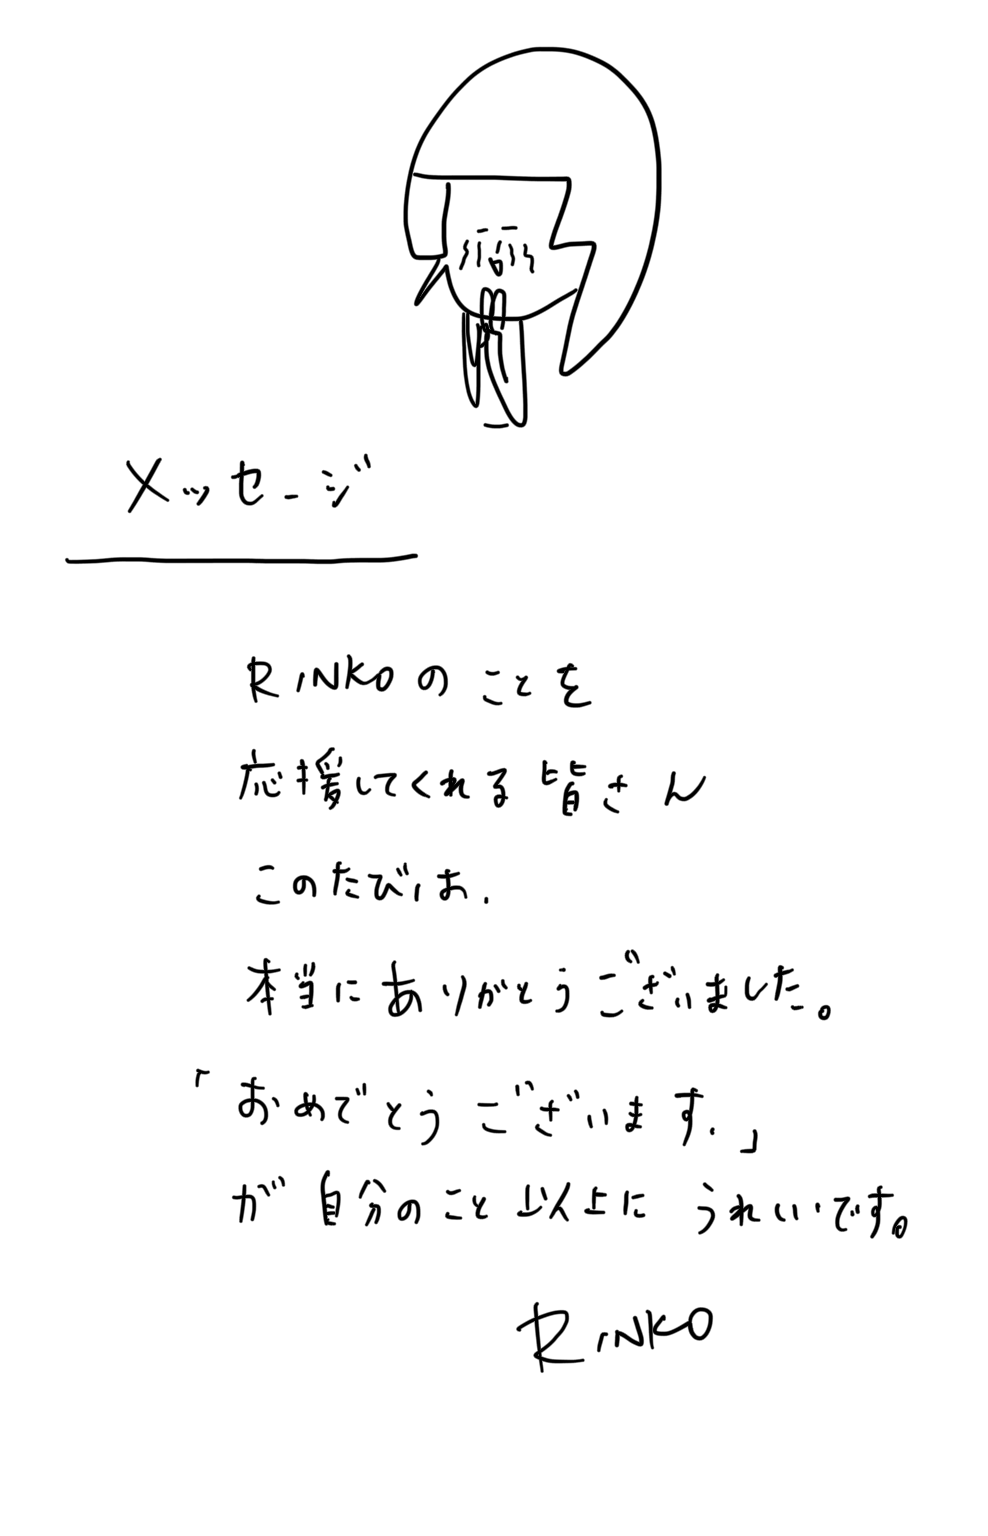 メッセージ
RINKOのことを
応援してくれる皆さん
このたびは、
本当にありがとうございました。
「おめでとうございます。」
が自分のこと以上にうれいいです。
RINKO